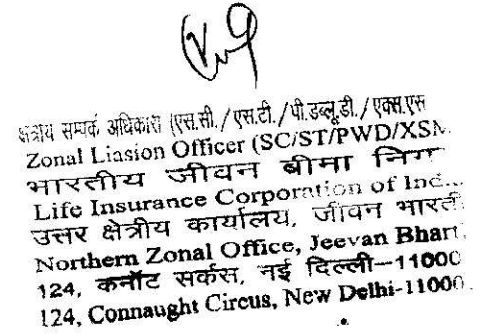 क्षेत्रीय सम्पर्क अधिकारी (एस.सी./एस.टी./पी.डब्लू.डी./एक्स.एस
Zonal Liasion Officer (SC/ST/PWD/XSM
भारतीय जीवन बीमा निग
Life Insurance Corporation of Ind
उत्तर क्षेत्रीय कार्यालय, जीवन भारती
Northern Zonal Office, Jeevan Bharti
124, कनॉट सर्कस, नई दिल्ली-11000
124, Connaught Circus, New Delhi-11000